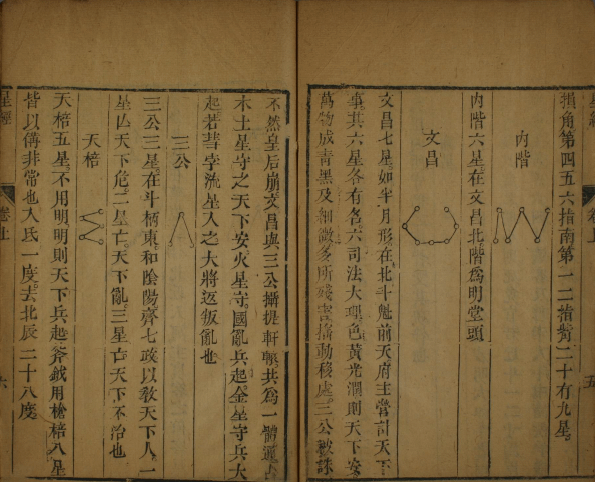 指角第四五六指南第一二指觜二十有九星
内階
内階六星在文昌北階爲明堂頭
文昌
文昌七星如半月形在北斗魁前天府主營計天下
事其六星各有各六司法大理色黃光潤則天下安
萬物成青黑及細微多所殘害搖動移處三公被誅
不然皇后崩文昌與三公攝提軒轅共爲一體通占
木土星守之天下安火星守國亂兵起金星守兵大
起若彗孛流星入之大將返叛亂也
三公
三公三星在斗柄東和陰陽齊七政以敎天下人一
星亾天下危二星亡天下亂三星亡天下不治也
天棓
天棓五星不用明明則天下兵起斧鉞用槍棓八星
皆以備非常也入氐一度去北辰二十八度
星經
卷上
六
五